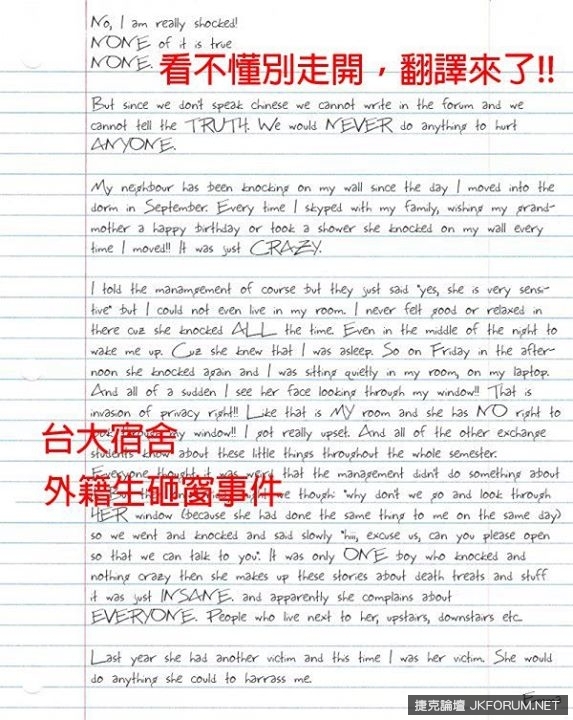 No, I am really shocked!
NONE of it is true
NONE.
看不懂別走開，翻譯來了!!
But since we don't speak chinese we cannot write in the forum and we
cannot tell the TRUTH. We would NEVER do anything to hurt
ANYONE.
My neighbour has been knocking on my wall since the day I moved into the
dorm in September. Every time I skyped with my family, wishing my grand-
mother a happy birthday or took a shower she knocked on my wall every
time I moved!! It was just CRAZY.
I told the manamgement of course but they just said "yes, she is very sensi-
tive" but I could not even live in my room. I never felt good or relaxed in
there cuz she knocked ALL the time. Even in the middle of the night to
wake me up. Cuz she knew that I was asleep. So on Friday in the after-
noon she knocked again and I was sitting quietly in my room, on my laptop.
And all of a sudden I see her face looking through my window!! That is
invasion of privacy right!! Like that is MY room and she has NO right to
window!! I got really upset. And all of the other exchange
台大宿舍
know about these little things throughout the whole semester.
Everyone thought it was weird that the management didn't do something about
外籍生砸窗事件
we though: "why don't we go and look through
HER window (because she had done the same thing to me on the same day)
so we went and knocked and said slowly "hiii, excuse us, can you please open
so that we can talk to you". It was only ONE boy who knocked and
nothing crazy then she makes up these stories about death treats and stuff
it was just INSANE. and apparently she complains about
EVERYONE. People who live next to her, upstairs, downstairs etc.
Last year she had another victim and this time I was her victim. She would
do anything she could to harrass me.
捷克論壇 JKFORUM.NET